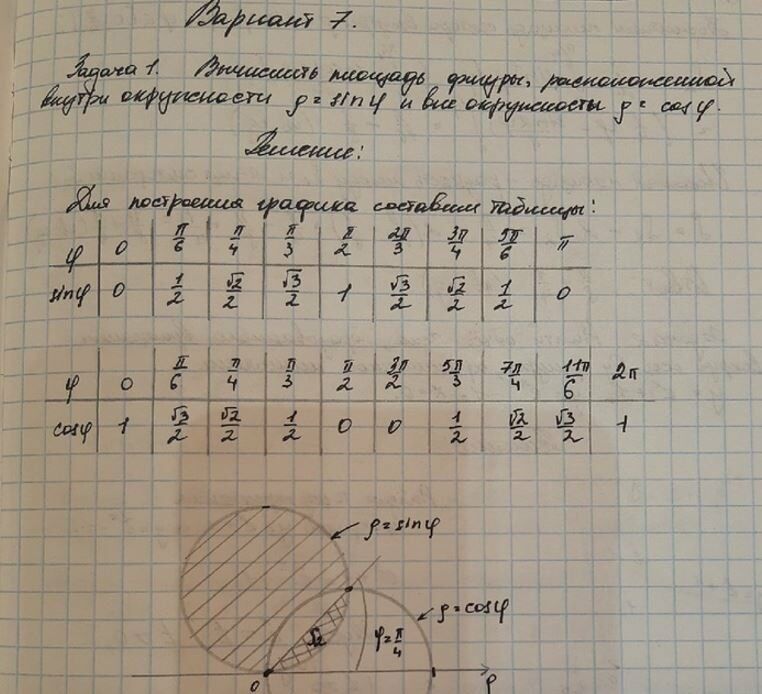 Вариант 7.
Задача 1. Вычислить площадь фигуры, расположенной
внутри окружности ρ = sin φ и вне окружности ρ = cos φ.
Решение:
Для построения графика составим таблицы:
φ 0 π/6 π/4 π/3 π/2 2π/3 3π/4 5π/6 π
sin φ 0 1/2 √2/2 √3/2 1 √3/2 √2/2 1/2 0
φ 0 π/6 π/4 π/3 π/2 3π/2 5π/3 7π/4 11π/6 2π
cos φ 1 √3/2 √2/2 1/2 0 0 1/2 √2/2 √3/2 1
ρ = sin φ
ρ = cos φ
φ = π/4
0 ρ